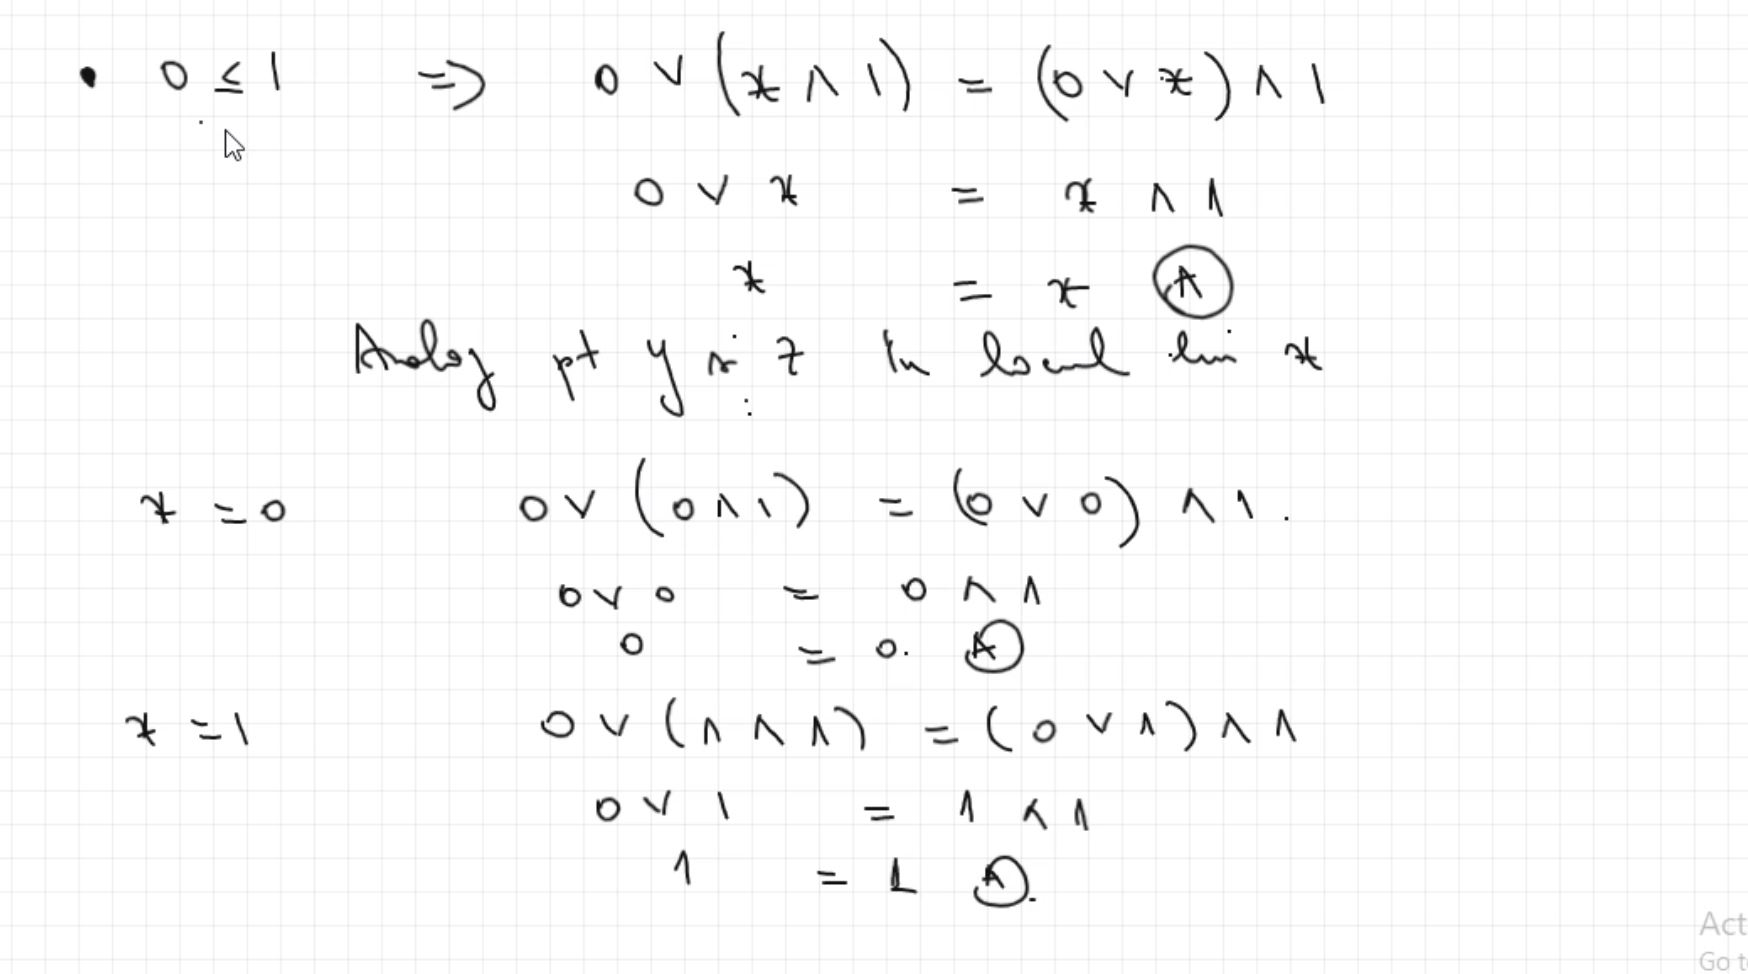 • 0 ≤ 1 => 0 ∨ (x ∧ 1) = (0 ∨ x) ∧ 1
0 ∨ x = x ∧ 1
x = x A
Analog pt y și z în locul lui x
x = 0 0 ∨ (0 ∧ 1) = (0 ∨ 0) ∧ 1.
0 ∨ 0 = 0 ∧ 1
0 = 0. A
x = 1 0 ∨ (1 ∧ 1) = (0 ∨ 1) ∧ 1
0 ∨ 1 = 1 ∧ 1
1 = 1 A.
Act
Go t